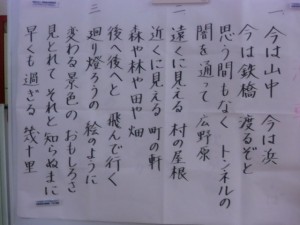 一
今は山中 今は浜
今は鉄橋 渡るぞと
思う間もなく トンネルの
闇を通って 広野原
二
遠くに見える 村の屋根
近くに見える 町の軒
森や林や田や畑
後へ後へと 飛んで行く
三
廻り燈ろうの 絵のように
変わる景色の おもしろさ
見とれて それと知らぬまに
早くも過ぎる 幾十里